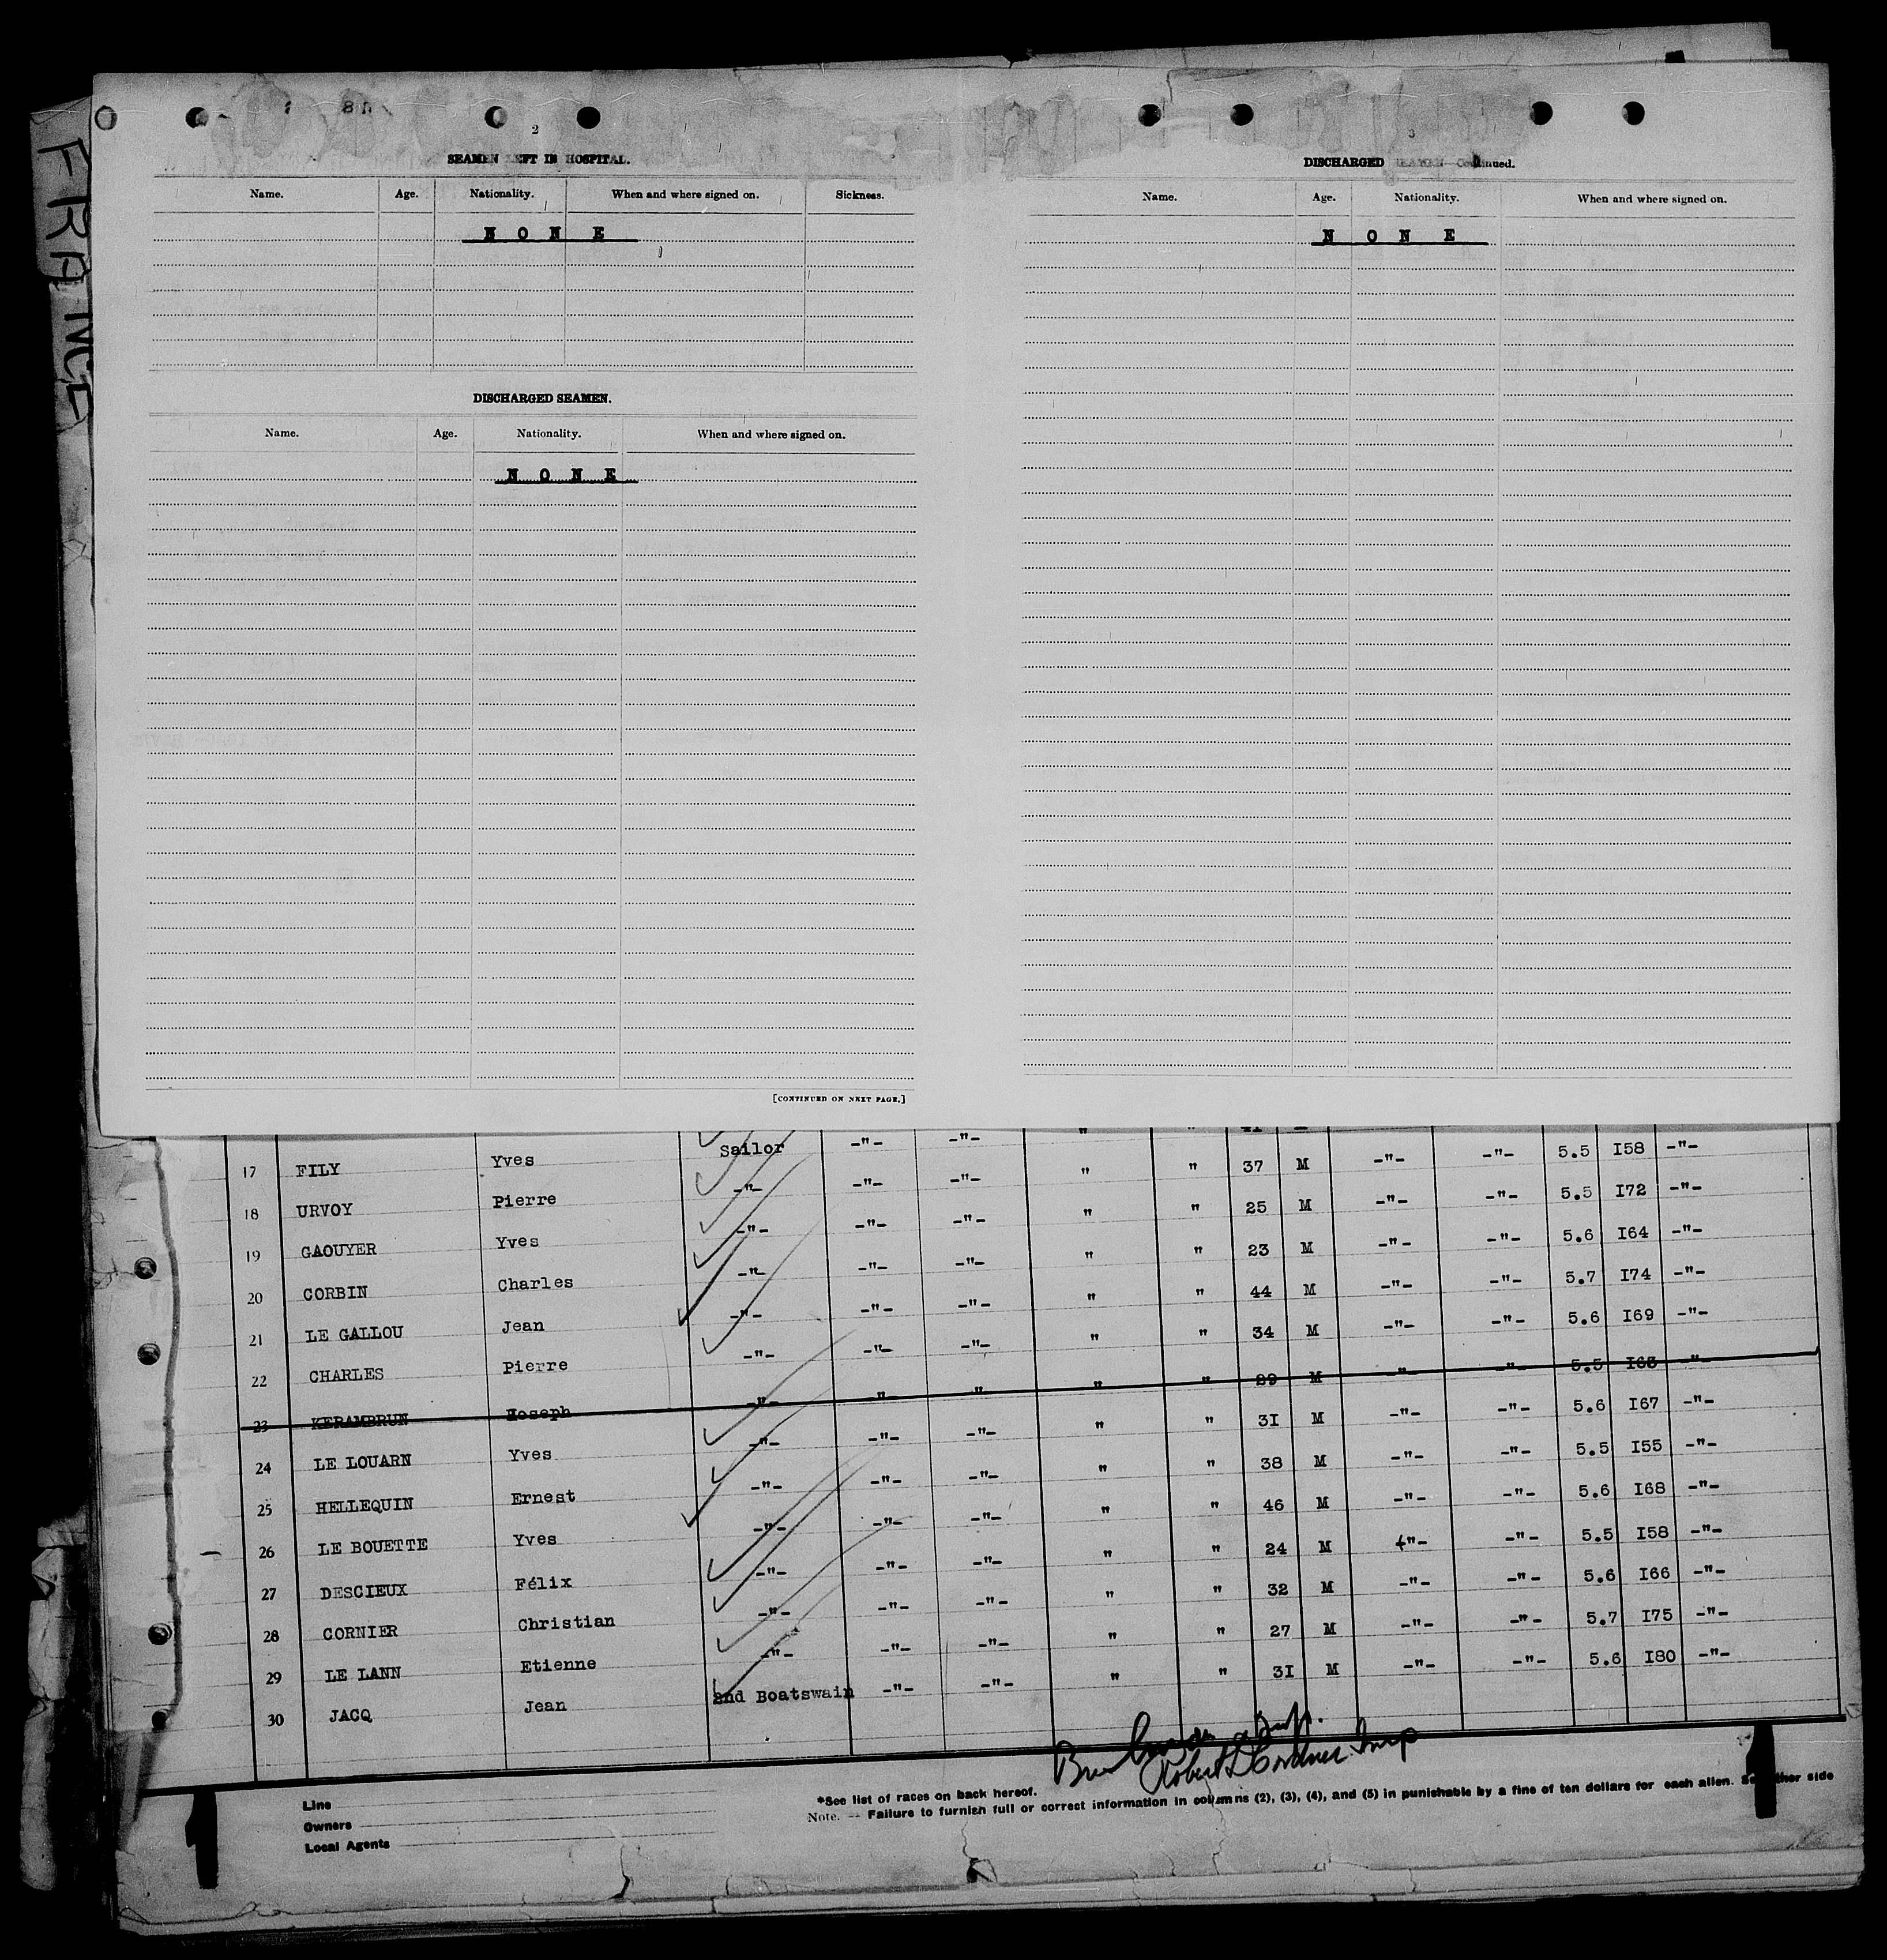 FRANCE
2
SEAMEN LEFT IN HOSPITAL.
Name. Age. Nationality. When and where signed on. Sickness.
N O N E
DISCHARGED SEAMEN.
Name. Age. Nationality. When and where signed on.
N O N E
[CONTINUED ON NEXT PAGE.]
3
DISCHARGED SEAMEN—Continued.
Name. Age. Nationality. When and where signed on.
N O N E
17 FILY Yves Sailor -"- -"- " " 37 M -"- -"- 5.5 I58 -"-
18 URVOY Pierre -"- -"- -"- " " 25 M -"- -"- 5.5 I72 -"-
19 GAOUYER Yves -"- -"- -"- " " 23 M -"- -"- 5.6 I64 -"-
20 CORBIN Charles -"- -"- -"- " " 44 M -"- -"- 5.7 I74 -"-
21 LE GALLOU Jean -"- -"- -"- " " 34 M -"- -"- 5.6 I69 -"-
22 CHARLES Pierre -"- -"- -"- " " 29 M -"- -"- 5.5 I63 -"-
23 KERAMBRUN Hoseph -"- -"- -"- " " 31 M -"- -"- 5.6 I67 -"-
24 LE LOUARN Yves -"- -"- -"- " " 38 M -"- -"- 5.5 I55 -"-
25 HELLEQUIN Ernest -"- -"- -"- " " 46 M -"- -"- 5.6 I68 -"-
26 LE BOUETTE Yves -"- -"- -"- " " 24 M -"- -"- 5.5 I58 -"-
27 DESCIEUX Félix -"- -"- -"- " " 32 M -"- -"- 5.6 I66 -"-
28 CORNIER Christian -"- -"- -"- " " 27 M -"- -"- 5.7 I75 -"-
29 LE LANN Etienne -"- -"- -"- " " 3I M -"- -"- 5.6 I80 -"-
30 JACQ Jean 2nd Boatswain -"- -"-
Robert L Cordner Insp
Line
Owners
Local Agents
*See list of races on back hereof.
Note. — Failure to furnish full or correct information in columns (2), (3), (4), and (5) in punishable by a fine of ten dollars for each alien. See other side